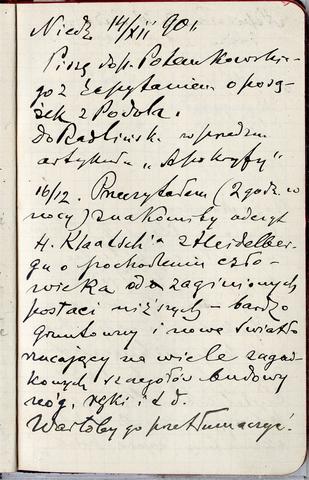 Niedz 14/XII 90r.
Piszę do p. Potankowskie-
go z zapytaniem o posą-
żek z Podola.
do Radlińsk. w sprawie
artykułu „Apokryfy"
16/12. Przeczytałem (2 godz. w
nocy) znakomity odczyt
H. Klaatsch'a z Heidelber-
gu o pochodzeniu czło-
wieka od zaginionych
postaci niższych – bardzo
gruntowny i nowe światło
rzucający na wiele zagad-
kowych szczegółów budowy
nóg, ręki i t. d.
Wartoby go przetłumaczyć.